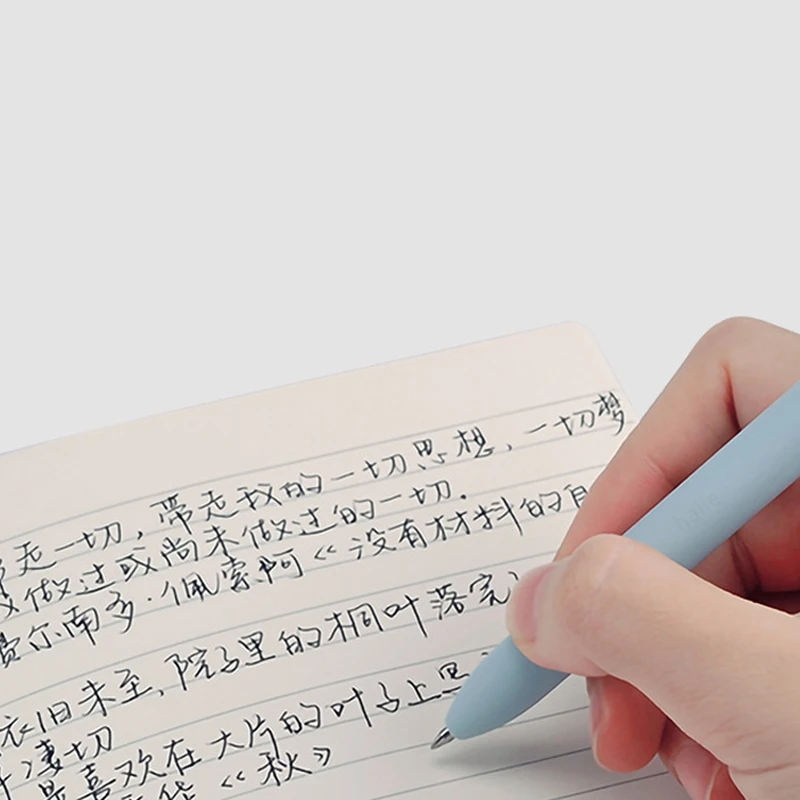 走一切,带走我的一切思想,一切梦
做过或尚未做过的一切.
费尔南多·佩索阿《没有材料的自
依旧未至,院子里的桐叶落完
凄切
最喜欢在大片的叶子上写
《秋》